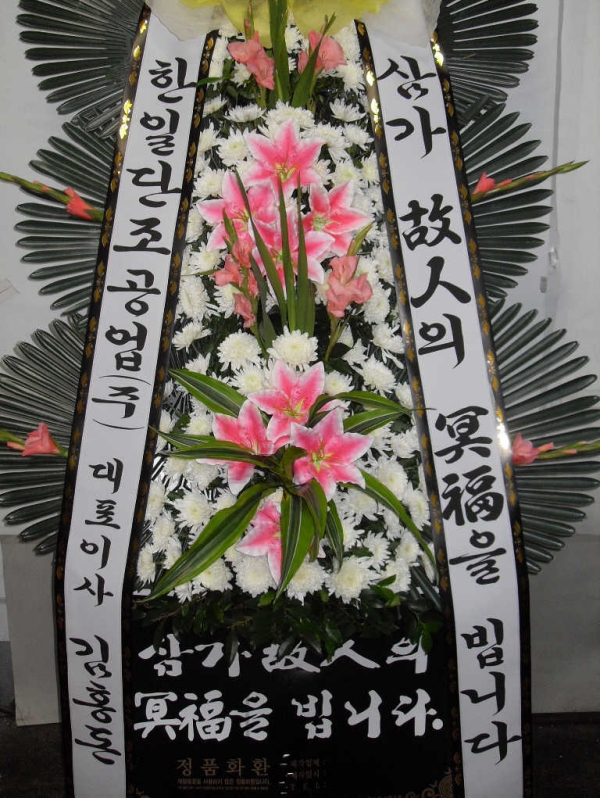 한일단조공업(주) 대표이사 김홍돈
삼가 故人의 冥福을 빕니다
삼가 故人의
冥福을 빕니다.
정품화환